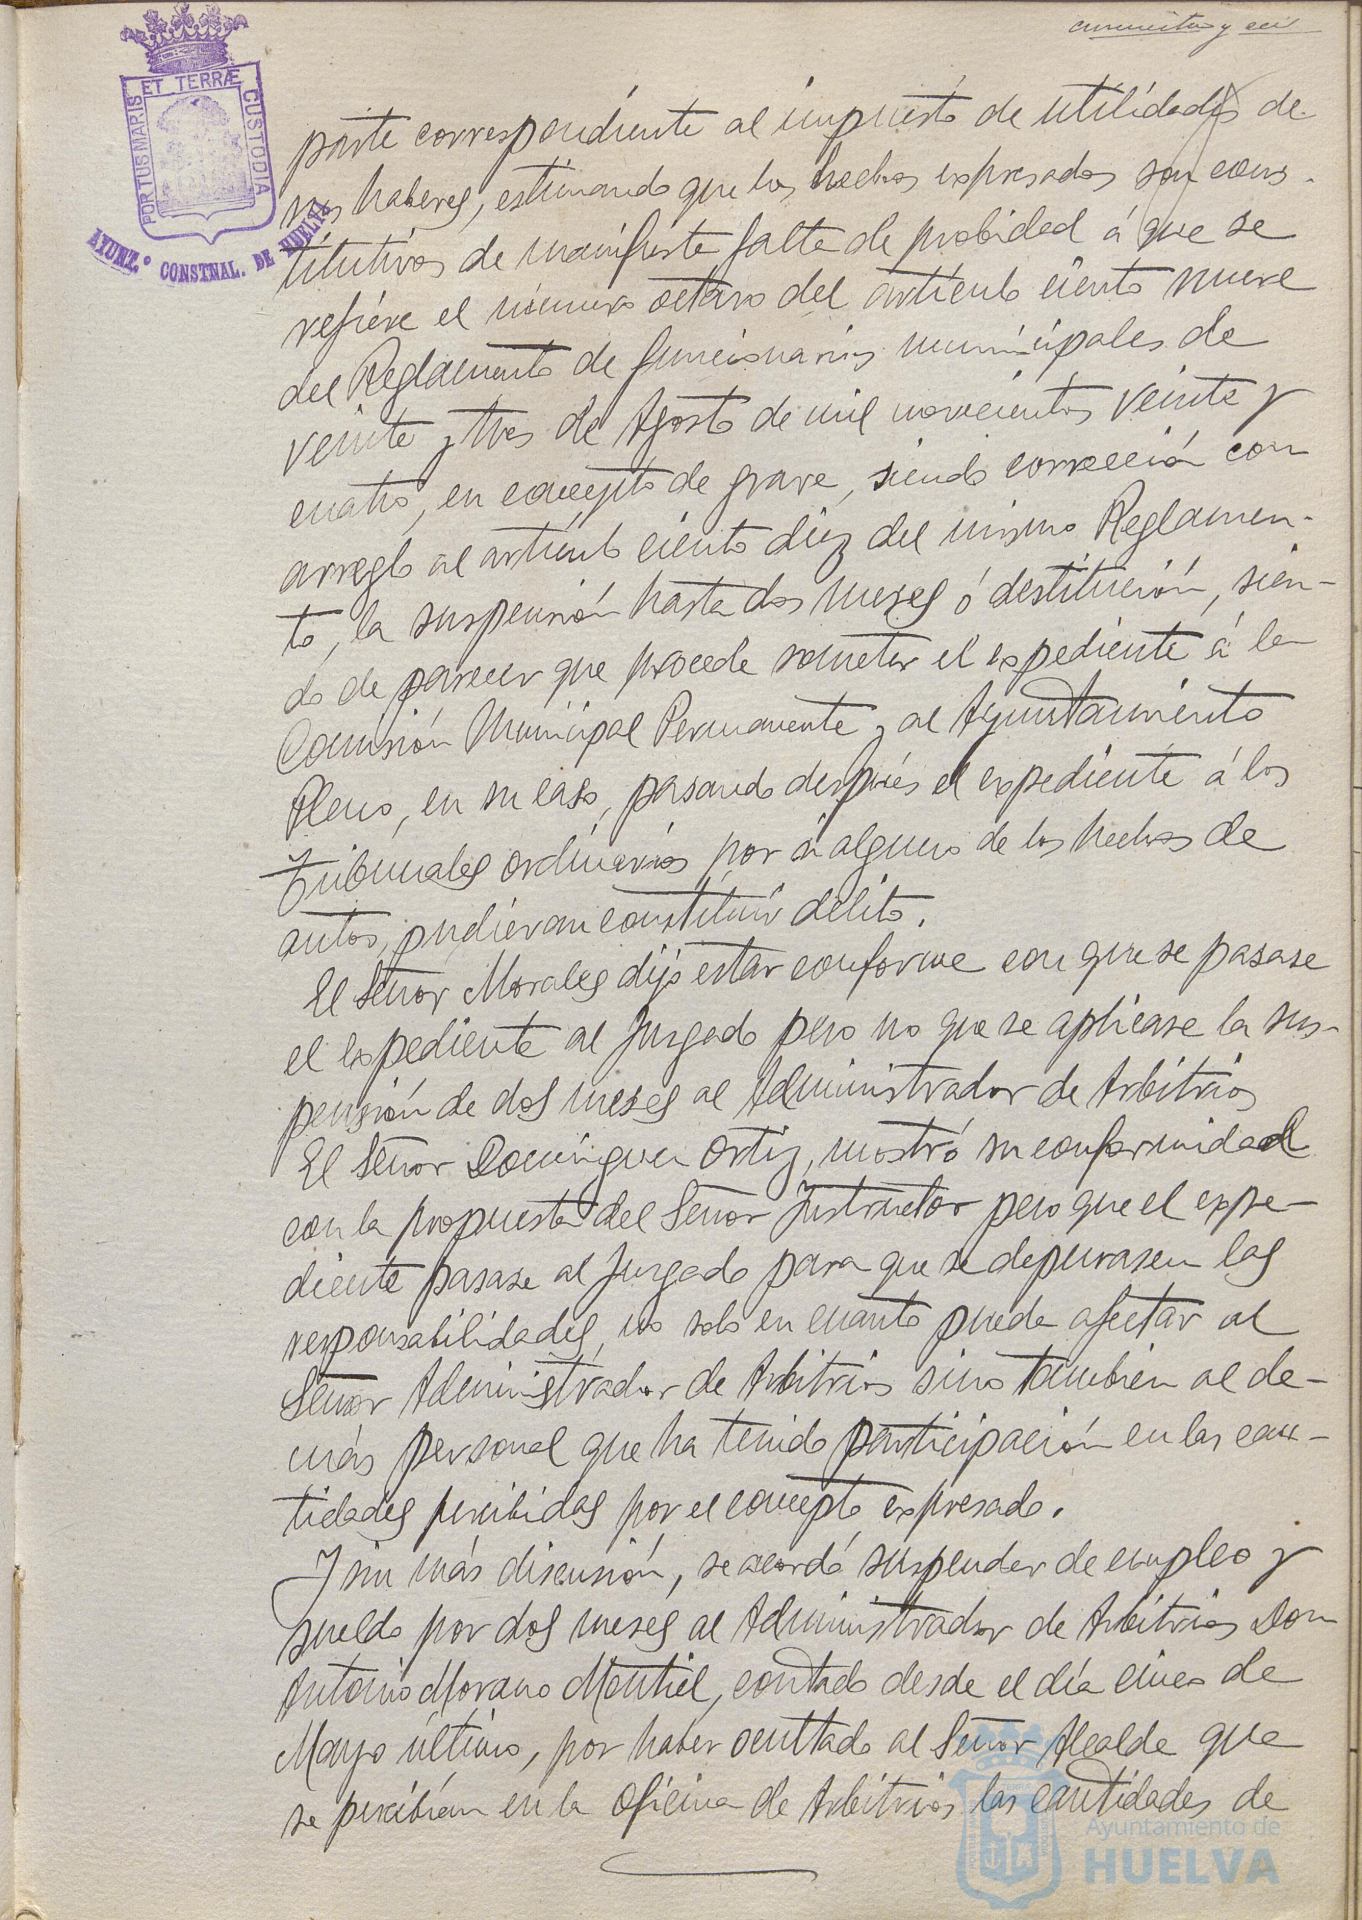 cincuenta y seis
PORTUS MARIS ET TERRÆ CUSTODIA
AYUNT.º CONSTNAL. DE HUELVA
parte correspondiente al impuesto de utilidades de
sus haberes, estimando que los hechos expresados son cons-
titutivos de manifiesta falta de probidad á que se
refiere el número octavo del artículo ciento nueve
del Reglamento de funcionarios municipales de
veinte y tres de Agosto de mil novecientos veinte y
cuatro, en concepto de grave, siendo corrección con
arreglo al artículo ciento diez del mismo Reglamen-
to, la suspensión hasta dos meses ó destitución, sien-
do de parecer que procede someter el expediente á la
Comisión Municipal Permanente y al Ayuntamiento
Pleno, en su caso, pasando después el expediente á los
Tribunales ordinarios por si alguno de los hechos de
autos, pudieran constituir delito.
El Señor Morales dijo estar conforme con que se pasase
el expediente al Juzgado pero no que se aplicase la sus-
pensión de dos meses al Administrador de Arbitrios
El Señor Domínguez Ortiz, mostró su conformidad
con la propuesta del Señor Instructor pero que el expe-
diente pasase al Juzgado para que se depurasen las
responsabilidades, no solo en cuanto puede afectar al
Señor Administrador de Arbitrios sino también al de-
más personal que ha tenido participación en las can-
tidades percibidas por el concepto expresado.
Y sin más discusión, se acordó suspender de empleo y
sueldo por dos meses al Administrador de Arbitrios Don
Antonio Morano Montiel, contado desde el día cinco de
Mayo último, por haber ocultado al Señor Alcalde que
se percibían en la oficina de Arbitrios las cantidades de
Ayuntamiento de
HUELVA